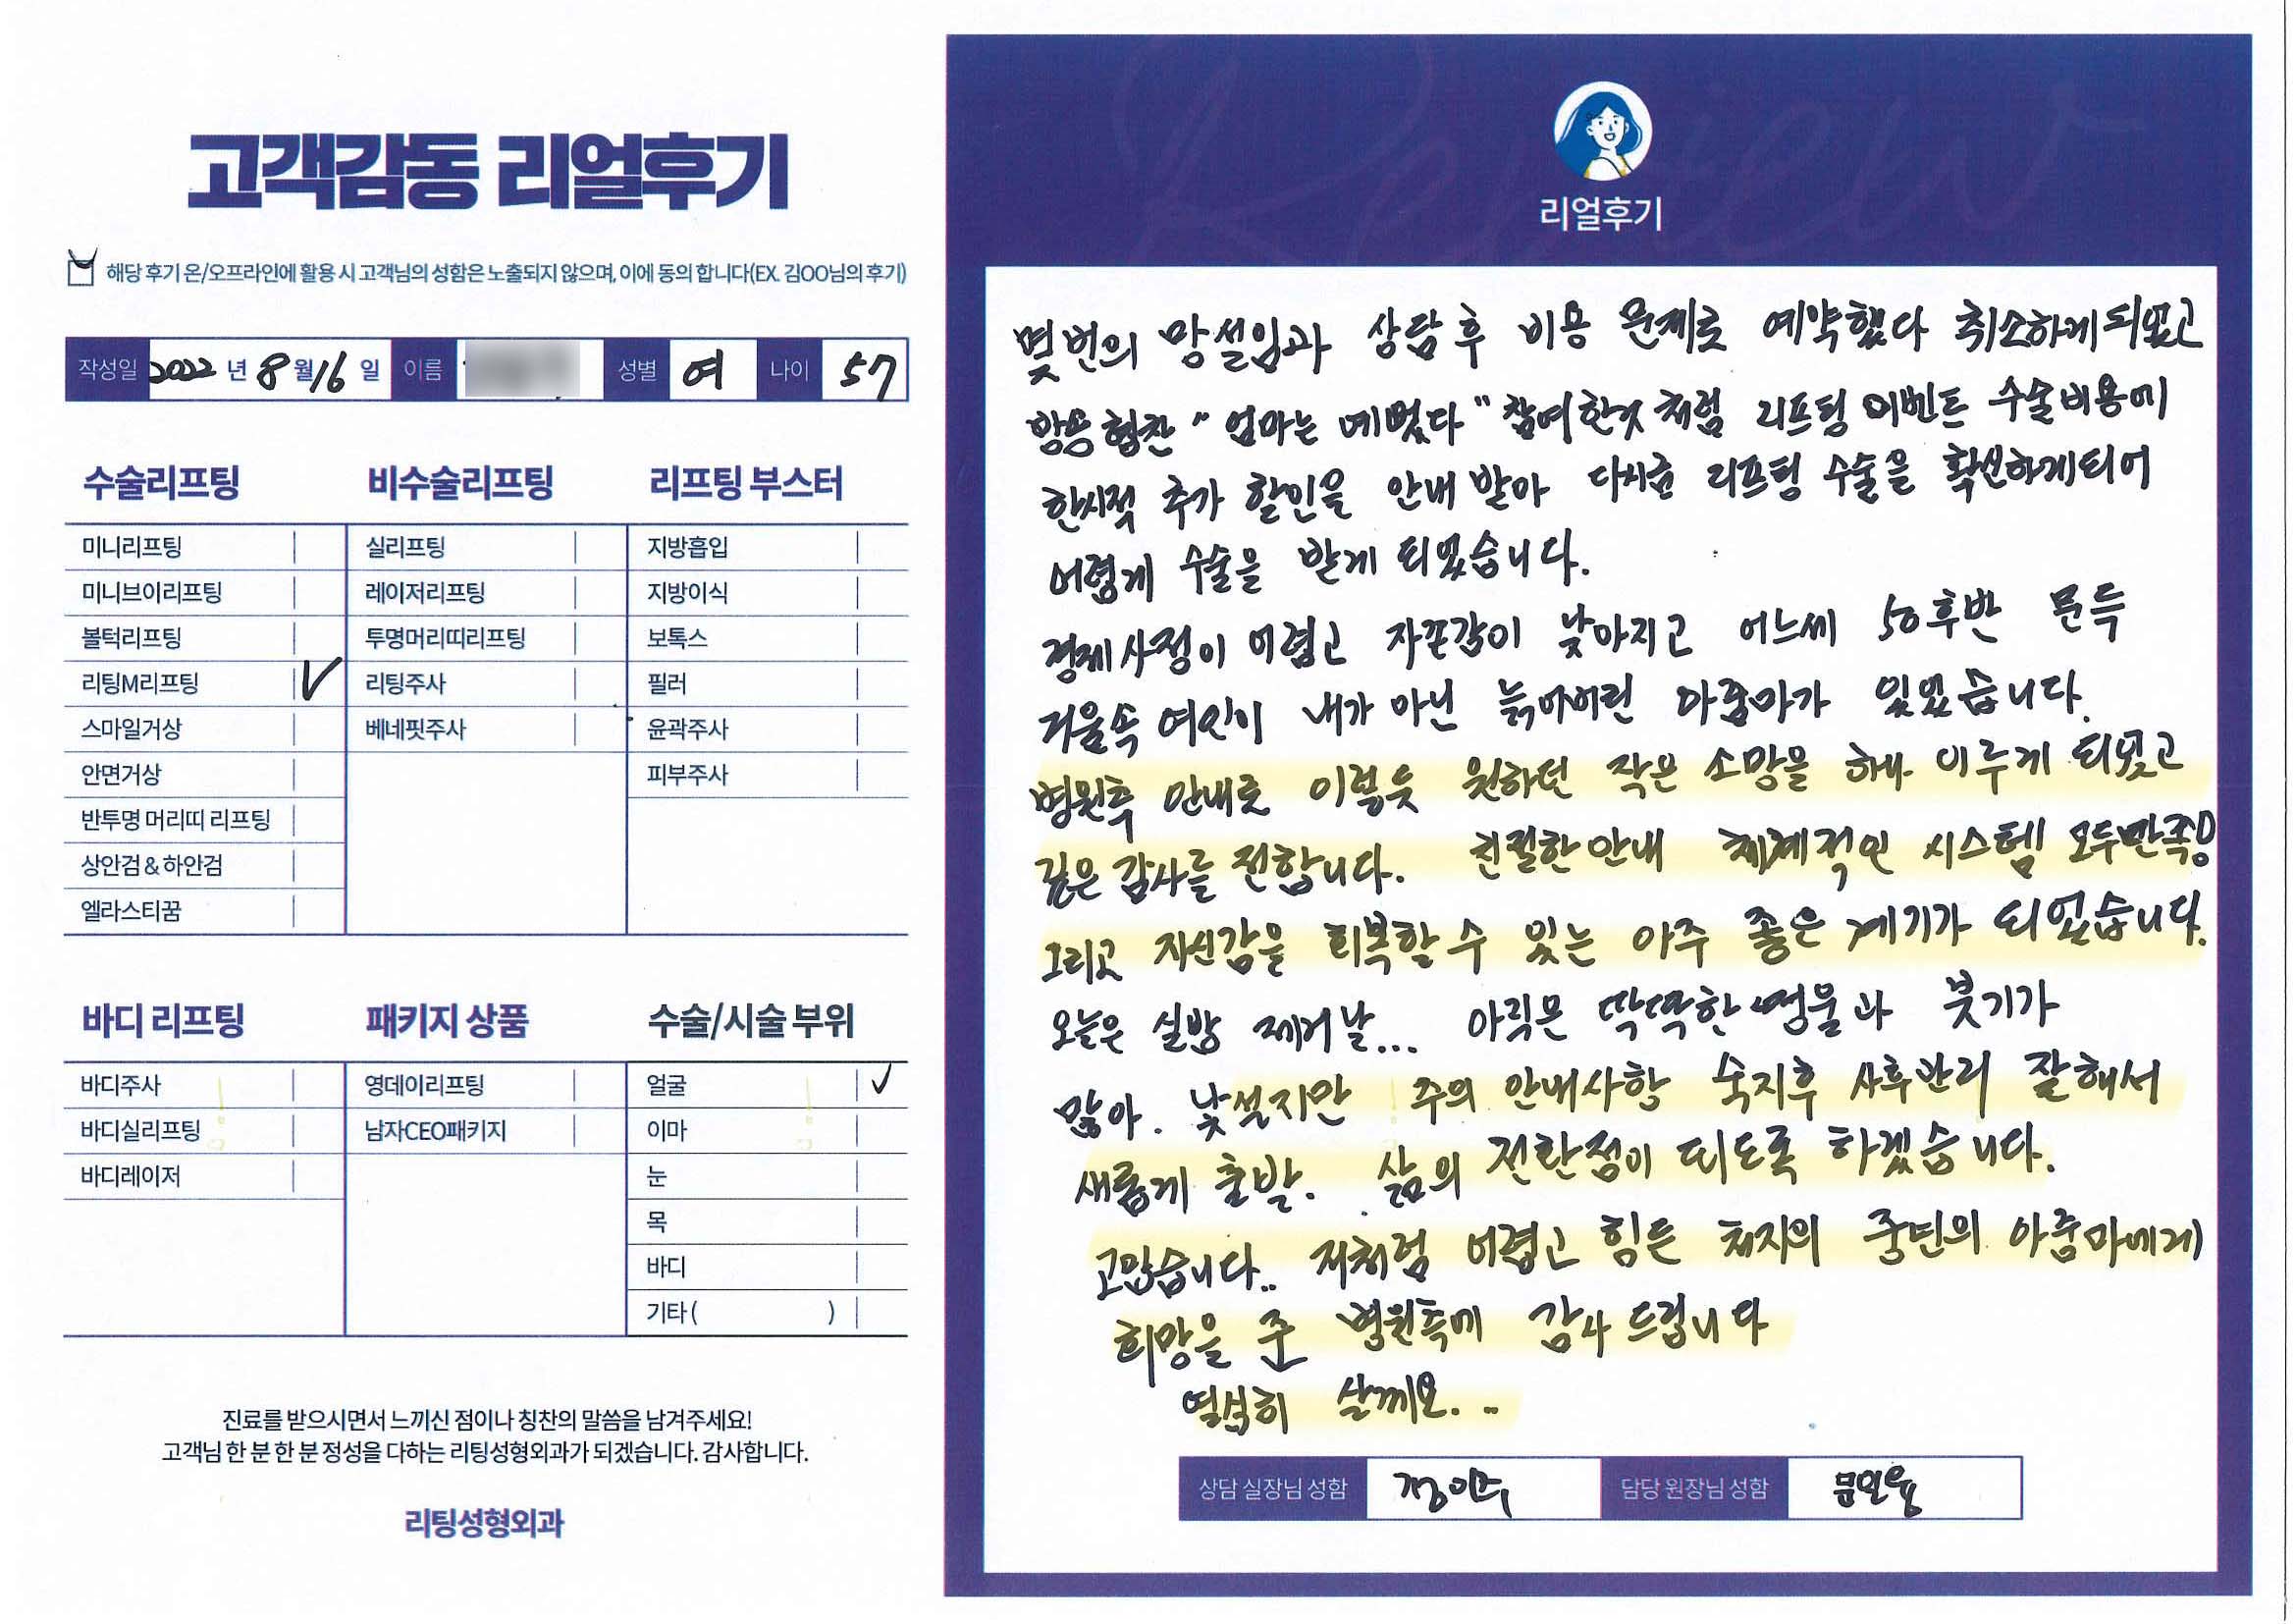 고객감동 리얼후기
해당 후기 온/오프라인에 활용 시 고객님의 성함은 노출되지 않으며, 이에 동의 합니다(EX. 김OO님의 후기)
작성일 2022 년 8 월 16 일 이름 성별 여 나이 57
수술리프팅
미니리프팅
미니브이리프팅
볼턱리프팅
리팅M리프팅 ✓
스마일거상
안면거상
반투명 머리띠 리프팅
상안검 & 하안검
엘라스티꿈
비수술리프팅
실리프팅
레이저리프팅
투명머리띠리프팅
리팅주사
베네핏주사
리프팅 부스터
지방흡입
지방이식
보톡스
필러
윤곽주사
피부주사
바디 리프팅
바디주사
바디실리프팅
바디레이저
패키지 상품
영데이리프팅
남자CEO패키지
수술/시술 부위
얼굴 ✓
이마
눈
목
바디
기타 ( )
진료를 받으시면서 느끼신 점이나 칭찬의 말씀을 남겨주세요!
고객님 한 분 한 분 정성을 다하는 리팅성형외과가 되겠습니다. 감사합니다.
리팅성형외과
Review
리얼후기
몇번의 망설임과 상담후 비용 문제로 예약했다 취소하게되었고
방송협찬 "엄마는 예뻤다" 참여한것 처럼 리프팅 이벤트 수술비용에
한시적 추가 할인을 안내 받아 다시금 리프팅 수술을 확신하게되어
어렵게 수술을 받게 되었습니다.
경제사정이 어렵고 자존감이 낮아지고 어느세 50후반 문득
거울속 여인이 내가 아닌 늙어버린 아줌마가 있었습니다.
병원측 안내로 이렇듯 원하던 작은 소망을 하나 이루게 되었고
깊은 감사를 전합니다. 친절한 안내 체계적인 시스템 모두만족!!
그리고 자신감을 회복할 수 있는 아주 좋은 계기가 되었습니다.
오늘은 실밥 제거날... 아직은 딱딱한 멍울과 붓기가
많아. 낯설지만 주의 안내사항 숙지후 사후관리 잘해서
새롭게 출발. 삶의 전환점이 되도록 하겠습니다.
고맙습니다.. 저처럼 어렵고 힘든 처지의 중년의 아줌마에게
희망을 준 병원측에 감사 드립니다
열심히 살께요...
상담 실장님 성함 정이수 담당 원장님 성함